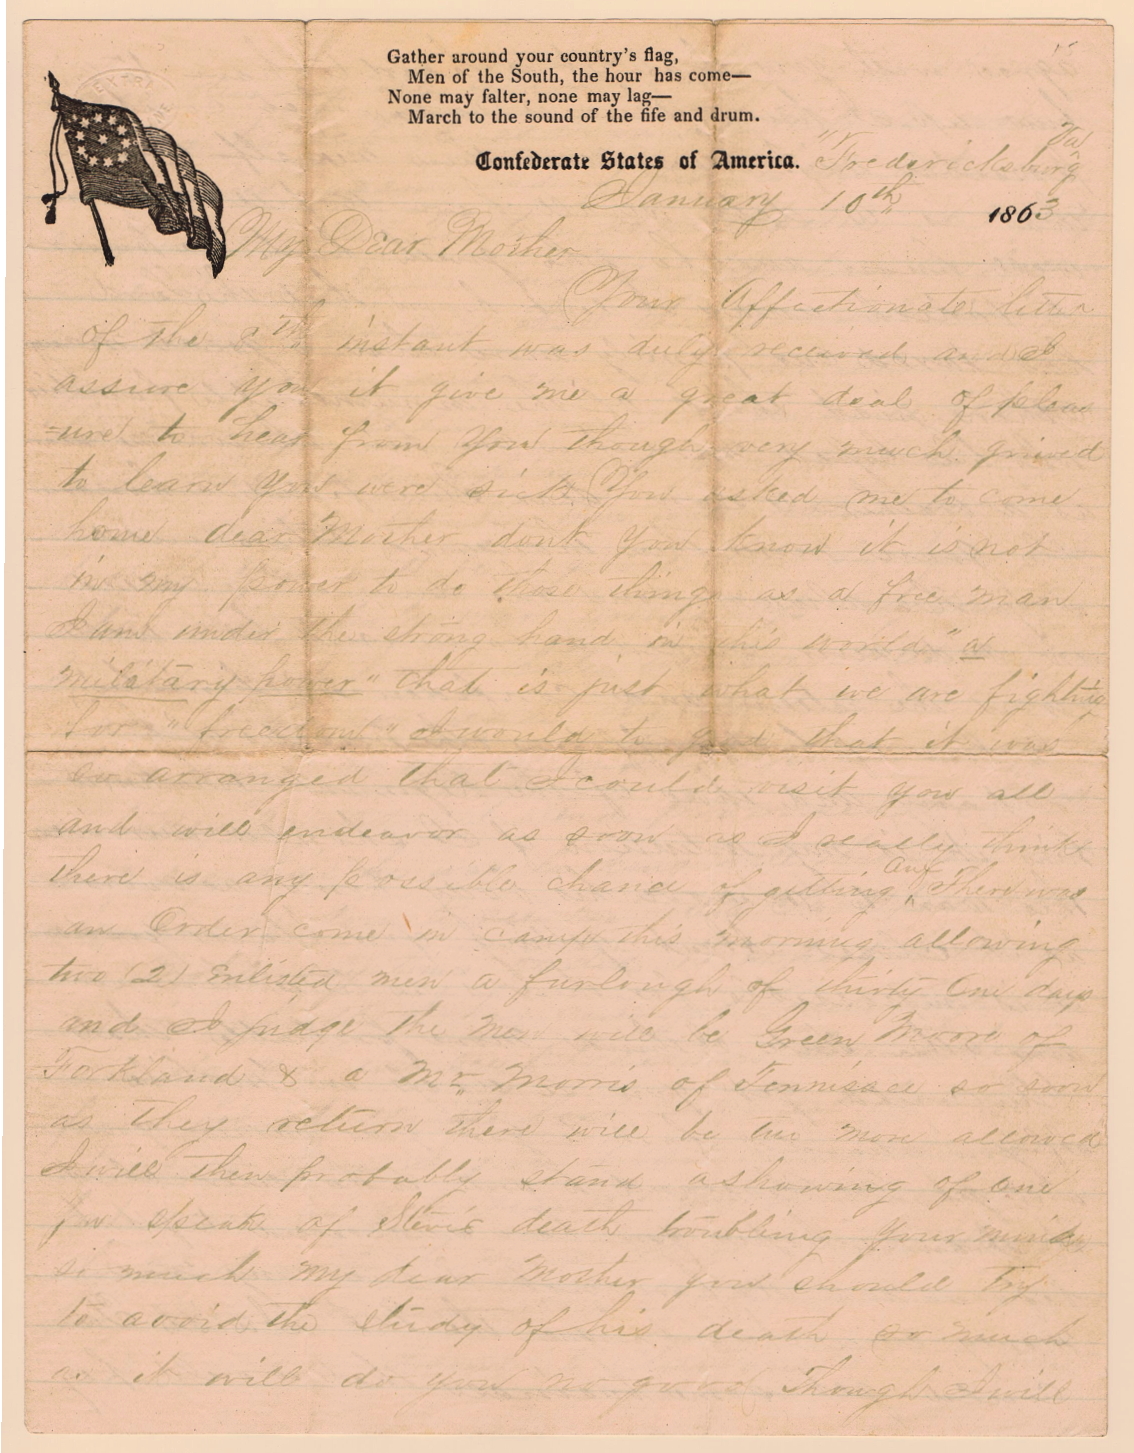 Gather around your country's flag,
Men of the South, the hour has come—
None may falter, none may lag—
March to the sound of the fife and drum.
Confederate States of America.
"Fredericksburg Va
January 10th 1863
My Dear Mother
Your Affectionate letter
of the 8th instant was duly received and I
assure you it give me a great deal of pleas
=ure to hear from you though very much grived
to learn you were sick You asked me to come
home dear Mother dont you know it is not
in my power to do those things as a free man
I am under the strong hand in this world "a
military power" that is just what we are fighting
for "freedom" I would to god that it was
so arranged that I could visit you all
and will endeavor as soon as I really think
there is any possible chance of getting one There was
an Order come in camp this morning allowing
two (2) Enlisted men a furlough of thirty One days
and I judge the men will be Green Moore of
Forkland & a Mr Morris of Tennisace so soon
as they return there will be two more allowed
I will then probably stand a showing of one
you speak of Stevie death troubling your mind
so much my dear Mother you should try
to avoid the study of his death so much
as it will do you no good Though I will